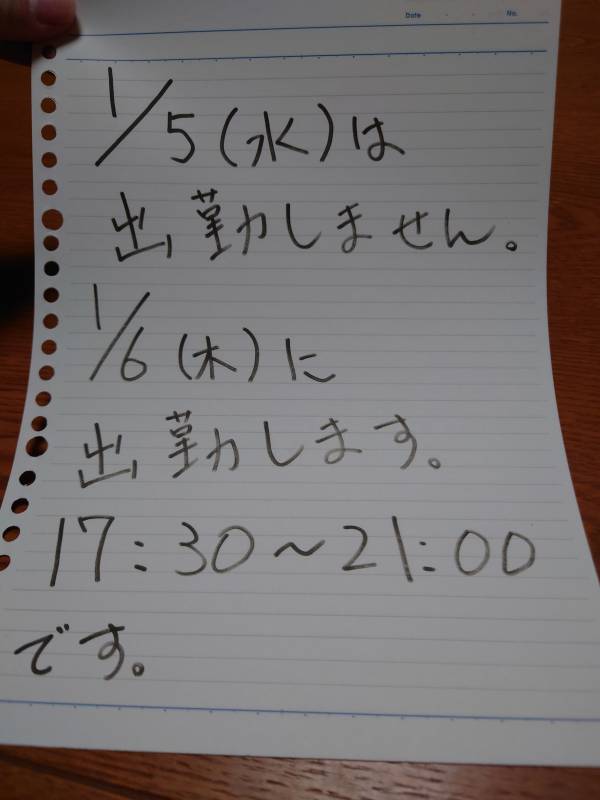 Date ・ ・ No.
1/5(水)は
出勤しません。
1/6(木)に
出勤します。
17:30～21:00
です。